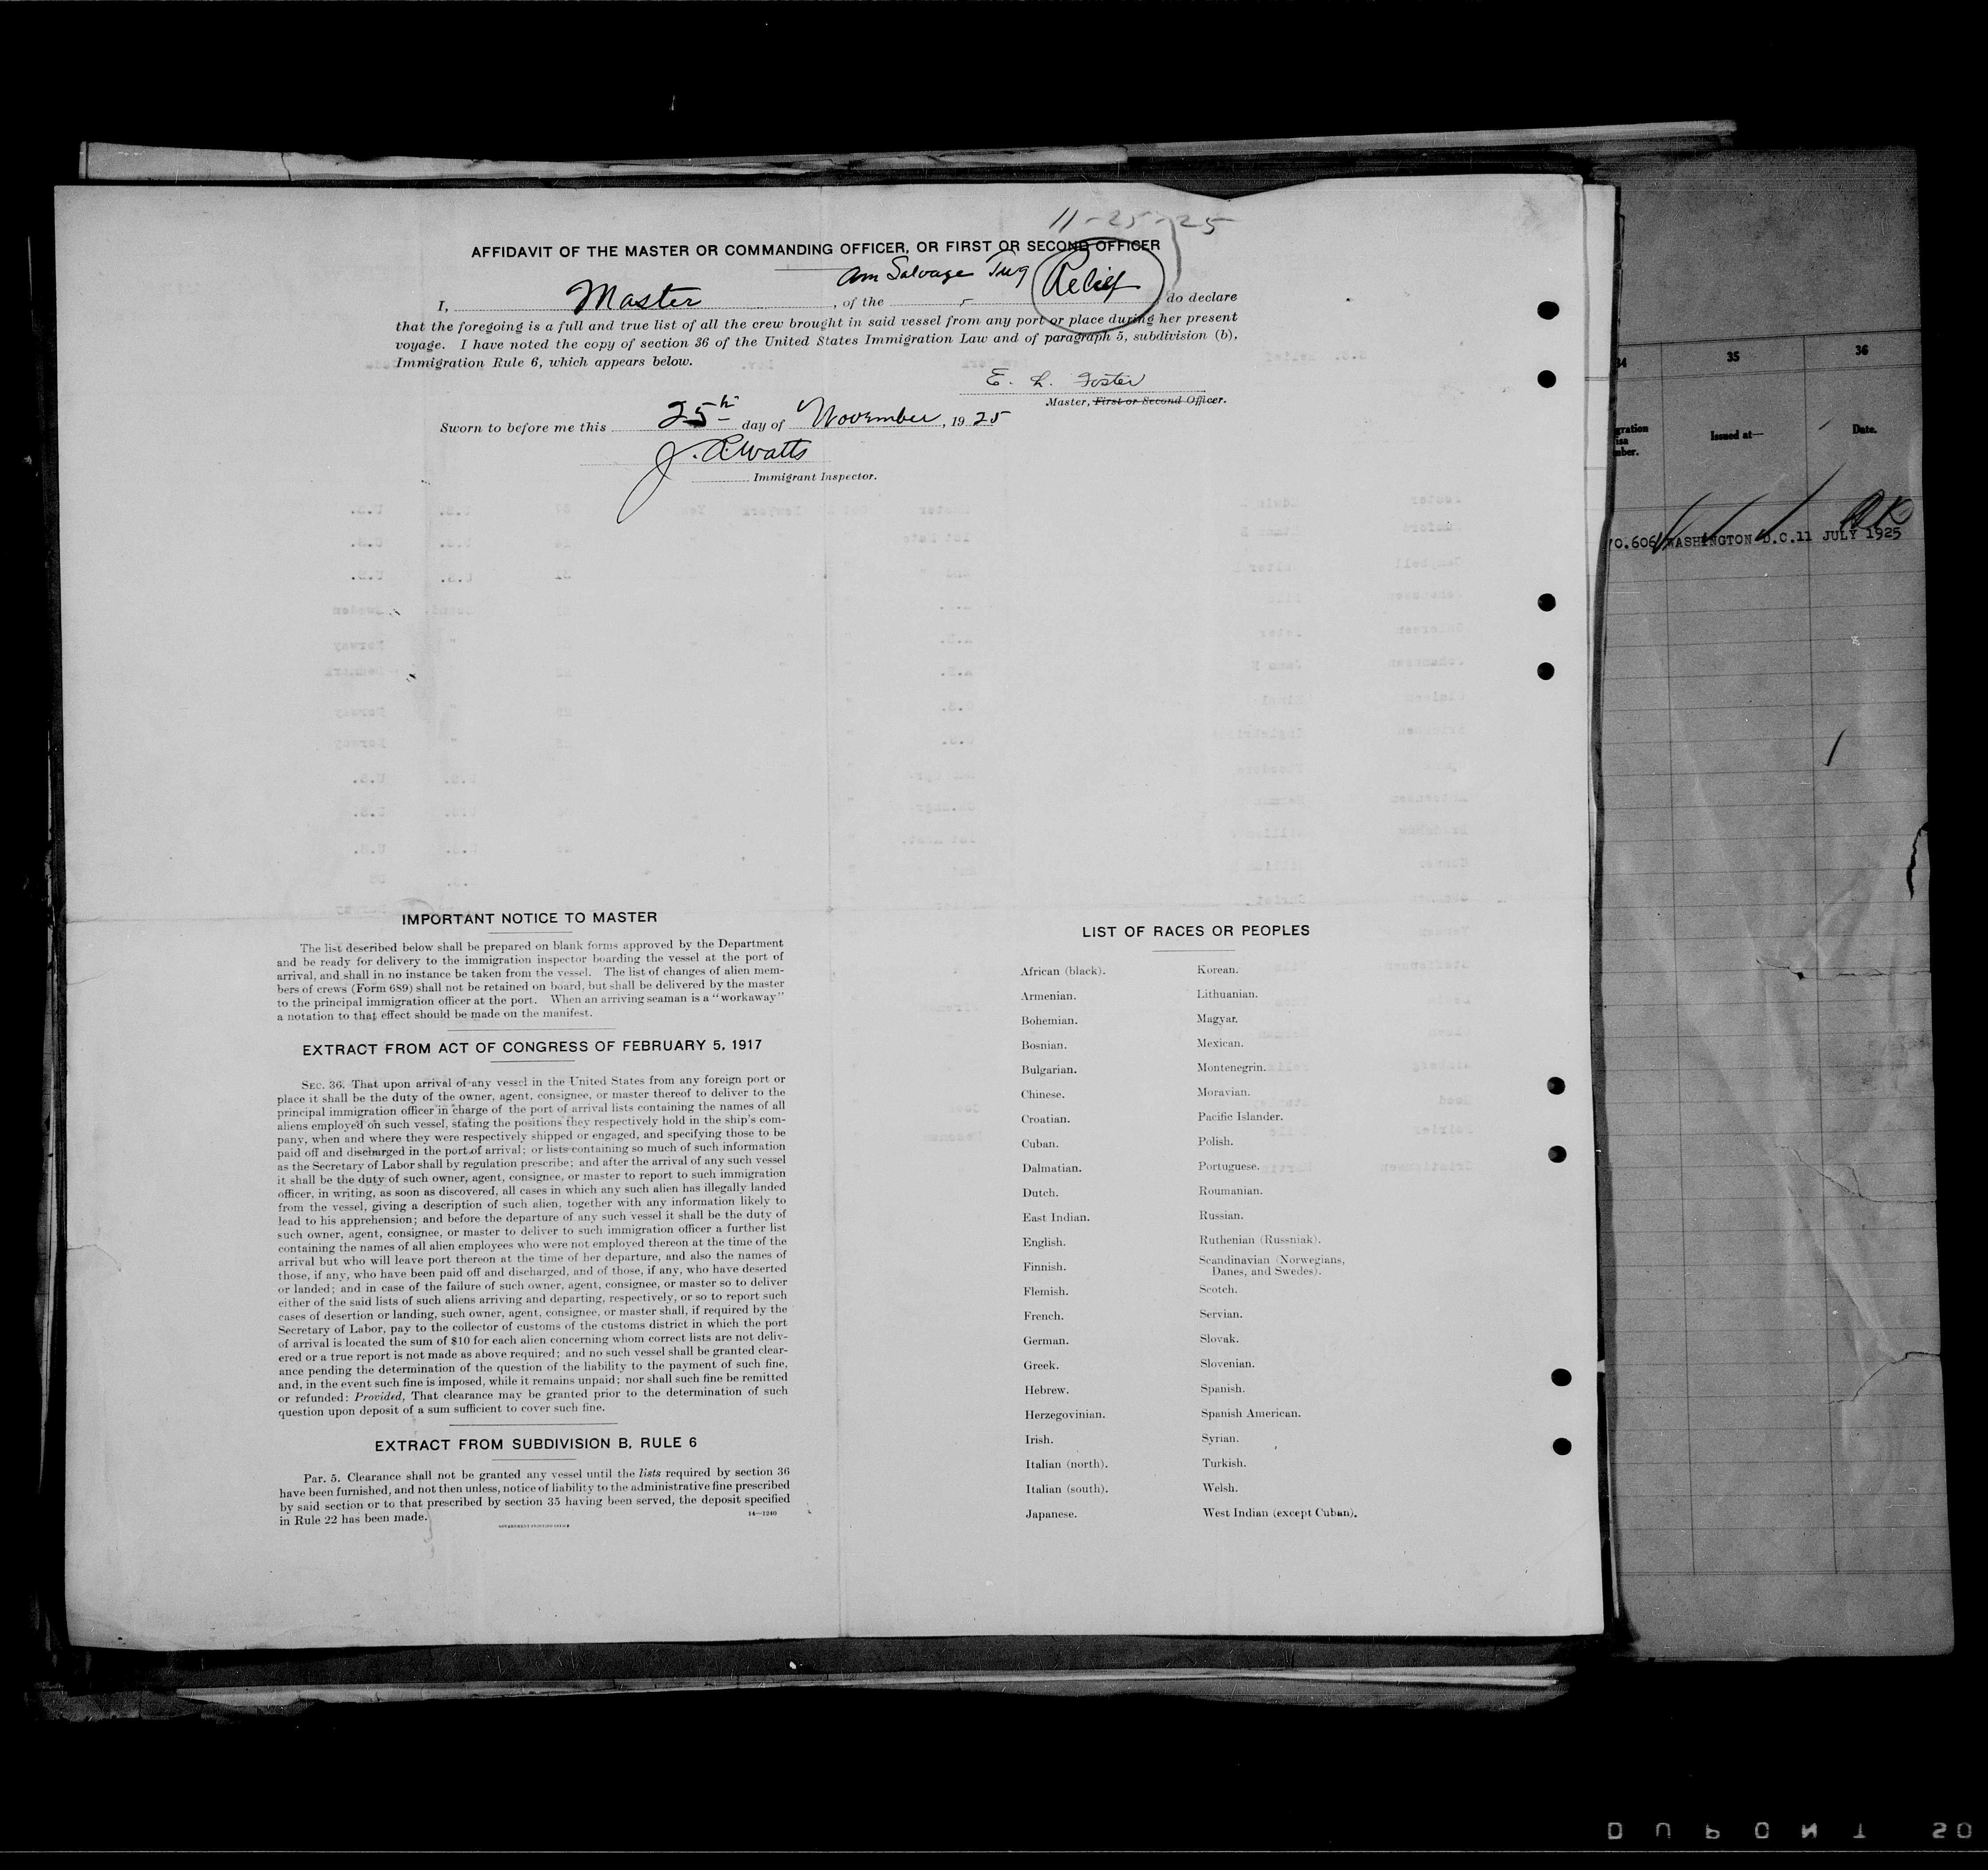 11-25-25
AFFIDAVIT OF THE MASTER OR COMMANDING OFFICER, OR FIRST OR SECOND OFFICER
Am Salvage Tug Relief
I, Master, of the , do declare
that the foregoing is a full and true list of all the crew brought in said vessel from any port or place during her present
voyage. I have noted the copy of section 36 of the United States Immigration Law and of paragraph 5, subdivision (b),
Immigration Rule 6, which appears below.
E. L. Foster
Master, First or Second Officer.
Sworn to before me this 25th day of November, 1925
J. Watts
Immigrant Inspector.
IMPORTANT NOTICE TO MASTER
The list described below shall be prepared on blank forms approved by the Department
and be ready for delivery to the immigration inspector boarding the vessel at the port of
arrival, and shall in no instance be taken from the vessel. The list of changes of alien mem-
bers of crews (Form 689) shall not be retained on board, but shall be delivered by the master
to the principal immigration officer at the port. When an arriving seaman is a "workaway"
a notation to that effect should be made on the manifest.
EXTRACT FROM ACT OF CONGRESS OF FEBRUARY 5, 1917
SEC. 36. That upon arrival of any vessel in the United States from any foreign port or
place it shall be the duty of the owner, agent, consignee, or master thereof to deliver to the
principal immigration officer in charge of the port of arrival lists containing the names of all
aliens employed on such vessel, stating the positions they respectively hold in the ship's com-
pany, when and where they were respectively shipped or engaged, and specifying those to be
paid off and discharged in the port of arrival; or lists containing so much of such information
as the Secretary of Labor shall by regulation prescribe; and after the arrival of any such vessel
it shall be the duty of such owner, agent, consignee, or master to report to such immigration
officer, in writing, as soon as discovered, all cases in which any such alien has illegally landed
from the vessel, giving a description of such alien, together with any information likely to
lead to his apprehension; and before the departure of any such vessel it shall be the duty of
such owner, agent, consignee, or master to deliver to such immigration officer a further list
containing the names of all alien employees who were not employed thereon at the time of the
arrival but who will leave port thereon at the time of her departure, and also the names of
those, if any, who have been paid off and discharged, and of those, if any, who have deserted
or landed; and in case of the failure of such owner, agent, consignee, or master so to deliver
either of the said lists of such aliens arriving and departing, respectively, or so to report such
cases of desertion or landing, such owner, agent, consignee, or master shall, if required by the
Secretary of Labor, pay to the collector of customs of the customs district in which the port
of arrival is located the sum of $10 for each alien concerning whom correct lists are not deliv-
ered or a true report is not made as above required; and no such vessel shall be granted clear-
ance pending the determination of the question of the liability to the payment of such fine,
and, in the event such fine is imposed, while it remains unpaid; nor shall such fine be remitted
or refunded: Provided, That clearance may be granted prior to the determination of such
question upon deposit of a sum sufficient to cover such fine.
EXTRACT FROM SUBDIVISION B, RULE 6
Par. 5. Clearance shall not be granted any vessel until the lists required by section 36
have been furnished, and not then unless, notice of liability to the administrative fine prescribed
by said section or to that prescribed by section 35 having been served, the deposit specified
in Rule 22 has been made.
14—1240
GOVERNMENT PRINTING OFFICE
LIST OF RACES OR PEOPLES
African (black).
Armenian.
Bohemian.
Bosnian.
Bulgarian.
Chinese.
Croatian.
Cuban.
Dalmatian.
Dutch.
East Indian.
English.
Finnish.
Flemish.
French.
German.
Greek.
Hebrew.
Herzegovinian.
Irish.
Italian (north).
Italian (south).
Japanese.
Korean.
Lithuanian.
Magyar.
Mexican.
Montenegrin.
Moravian.
Pacific Islander.
Polish.
Portuguese.
Roumanian.
Russian.
Ruthenian (Russniak).
Scandinavian (Norwegians,
Danes, and Swedes).
Scotch.
Servian.
Slovak.
Slovenian.
Spanish.
Spanish American.
Syrian.
Turkish.
Welsh.
West Indian (except Cuban).
34 35 36
Issued at— Date.
OK
O.606 WASHINGTON D.C. 11 JULY 1925
DUPONT 50